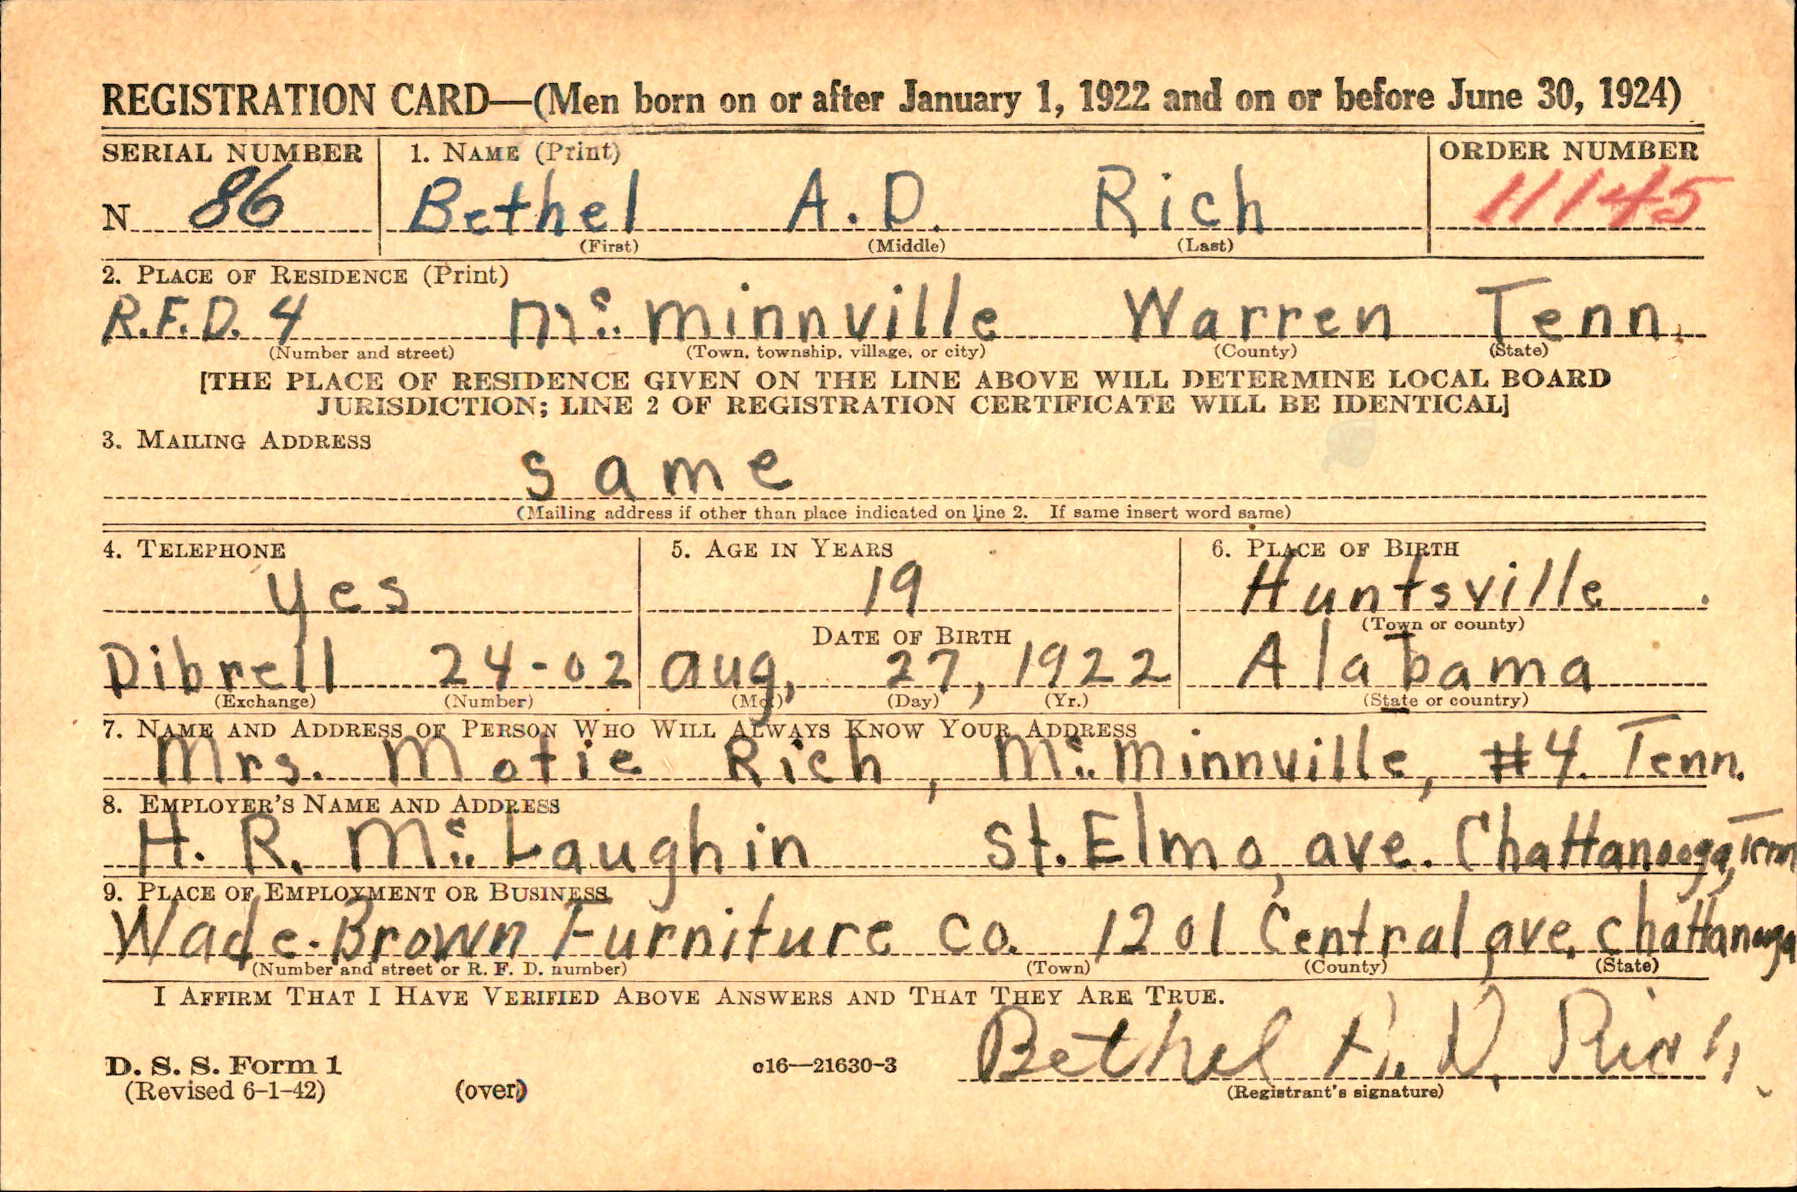 REGISTRATION CARD—(Men born on or after January 1, 1922 and on or before June 30, 1924)
SERIAL NUMBER 1. NAME (Print) ORDER NUMBER
N 86 Bethel A.D. Rich 11145
(First) (Middle) (Last)
2. PLACE OF RESIDENCE (Print)
R.F.D. 4 Mc. Minnville Warren Tenn.
(Number and street) (Town, township, village, or city) (County) (State)
[THE PLACE OF RESIDENCE GIVEN ON THE LINE ABOVE WILL DETERMINE LOCAL BOARD
JURISDICTION; LINE 2 OF REGISTRATION CERTIFICATE WILL BE IDENTICAL]
3. MAILING ADDRESS
same
(Mailing address if other than place indicated on line 2. If same insert word same)
4. TELEPHONE 5. AGE IN YEARS 6. PLACE OF BIRTH
yes 19 Huntsville
(Town or county)
DATE OF BIRTH
Dibrell 24-02 Aug, 27, 1922 Alabama
(Exchange) (Number) (Mo.) (Day) (Yr.) (State or country)
7. NAME AND ADDRESS OF PERSON WHO WILL ALWAYS KNOW YOUR ADDRESS
Mrs. Motie Rich, Mc. Minnville, #4. Tenn.
8. EMPLOYER'S NAME AND ADDRESS
H. R. Mc. Laughin St. Elmo, ave. Chattanooga, Tenn
9. PLACE OF EMPLOYMENT OR BUSINESS
Wade-Brown Furniture Co. 1201 Central ave. Chattanooga
(Number and street or R. F. D. number) (Town) (County) (State)
I AFFIRM THAT I HAVE VERIFIED ABOVE ANSWERS AND THAT THEY ARE TRUE.
Bethel A. D. Rich
D. S. S. Form 1 c16—21630-3
(Revised 6-1-42) (over) (Registrant's signature)